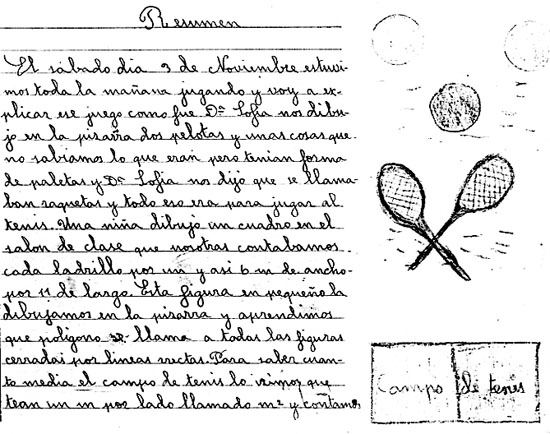 Resumen
El sábado dia 3 de Noviembre estuvi-
mos toda la mañana jugando y voy a ex-
plicar ese juego como fue Dª Sofia nos dibu-
jo en la pizarra dos pelotas y unas cosas que
no sabiamos lo que eran pero tenian forma
de paletas y Dª Sofia nos dijo que se llama-
ban raquetas y todo eso era para jugar al
tenis. Una niña dibujo un cuadro en el
salon de clase que nosotras contabamos
cada ladrillo por un y asi 6 m de ancho
por 11 de largo. Esta figura en pequeño la
dibujamos en la pizarra y aprendimos
que poligono se llama a todas las figuras
cerradas por lineas rectas. Para saber cuan-
to media el campo de tenis lo vimos que
tean un m por lado llamado m² y contamos
Campo de tenis